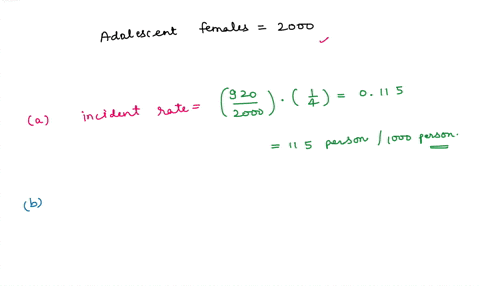 Adalescent females = 2000 ✓
(a) incident rate = (920/2000) · (1/4) = 0.115
= 115 person / 1000 person.
(b)